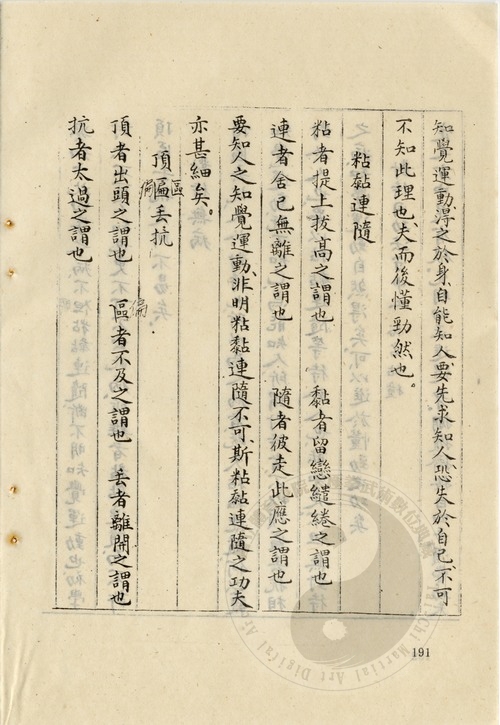 知覺運動得之於身自能知人要先求知人恐失於自己不可
不知此理也夫而後懂勁然也。
粘黏連隨
粘者提上拔高之謂也　黏者留戀繾綣之謂也
連者舍己無離之謂也　隨者彼走此應之謂也
要知人之知覺運動、非明粘黏連隨不可、斯粘黏連隨之功夫
亦甚細矣。
頂匾丟抗
區
偏
頂者出頭之謂也　匾者不及之謂也　丟者離開之謂也
偏
抗者太過之謂也
191